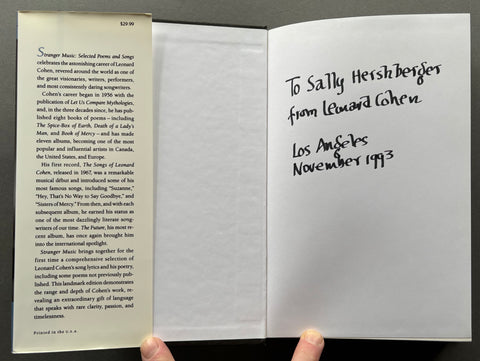 $29.99
Stranger Music: Selected Poems and Songs
celebrates the astonishing career of Leonard
Cohen, revered around the world as one of
the great visionaries, writers, performers,
and most consistently daring songwriters.
Cohen's career began in 1956 with the
publication of Let Us Compare Mythologies,
and, in the three decades since, he has pub-
lished eight books of poems—including
The Spice-Box of Earth, Death of a Lady's
Man, and Book of Mercy—and has made
eleven albums, becoming one of the most
popular and influential artists in Canada,
the United States, and Europe.
His first record, The Songs of Leonard
Cohen, released in 1967, was a remarkable
musical début and introduced some of his
most famous songs, including "Suzanne,"
"Hey, That's No Way to Say Goodbye," and
"Sisters of Mercy." From then, and with each
subsequent album, he earned his status as
one of the most dazzlingly literate song-
writers of our time. The Future, his most re-
cent album, has once again brought him
into the international spotlight.
Stranger Music brings together for the
first time a comprehensive selection of
Leonard Cohen's song lyrics and his poetry,
including some poems not previously pub-
lished. This landmark edition demonstrates
the range and depth of Cohen's work, re-
vealing an extraordinary gift of language
that speaks with rare clarity, passion, and
timelessness.
Printed in the U.S.A.
To Sally Hershberger
from Leonard Cohen
Los Angeles
November 1993